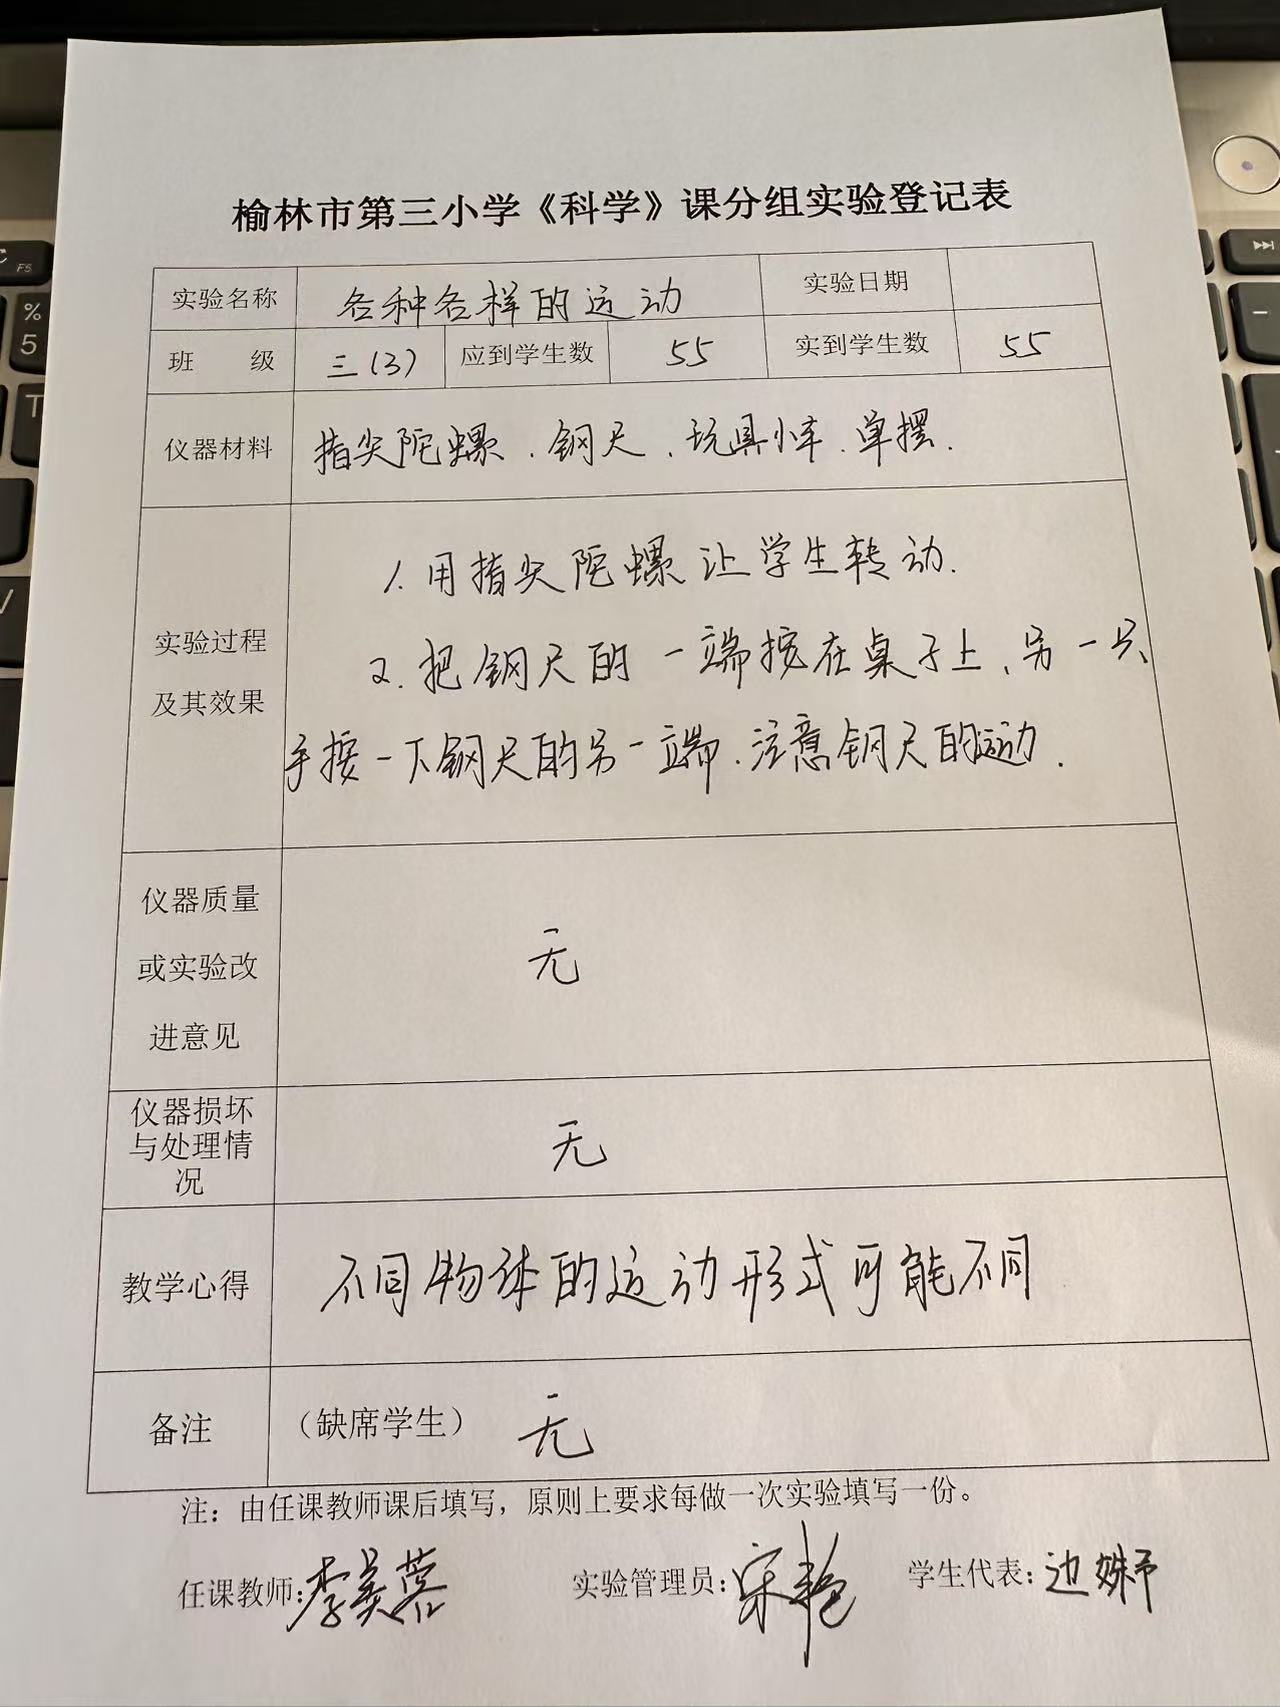 榆林市第三小学《科学》课分组实验登记表
实验名称 各种各样的运动 实验日期
班 级 三(3) 应到学生数 55 实到学生数 55
仪器材料 指尖陀螺、钢尺、玩具小车、单摆.
实验过程
及其效果
1. 用指尖陀螺让学生转动.
2. 把钢尺的一端按在桌子上、另一只
手按一下钢尺的另一端、注意钢尺的运动.
仪器质量
或实验改
进意见
无
仪器损坏
与处理情
况
无
教学心得 不同物体的运动形式可能不同
备注 (缺席学生) 无
注：由任课教师课后填写，原则上要求每做一次实验填写一份。
任课教师:李美蓉 实验管理员:宋艳 学生代表:边姝予
% 5
F5
T
V